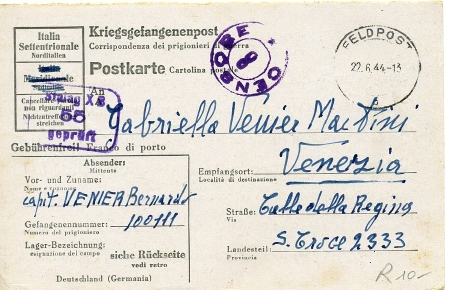 Italia
Settentrionale
Norditalien
Italia
Meridionale
Süditalien
Cancellare
non riguardanti
Nichtzutreffendes
streichen
Kriegsgefangenenpost
Corrispondenza dei prigionieri di guerra
Postkarte Cartolina postale
An
A
CENSORE
8
FELDPOST
22.6.44-13
b
Stalag X B
55
geprüft
Gebührenfrei! Franco di porto
Gabriella Venier Martini
Absender:
Mittente
Vor- und Zuname:
Nome e cognome
capit. VENIER Bernardo
Gefangenennummer:
Numero del prigioniero
100111
Lager-Bezeichnung:
designazione del campo
siehe Rückseite
vedi retro
Deutschland (Germania)
Empfangsort:
Località di destinazione
Venezia
Straße:
Via
Calle della Regina
S. Croce 2333
Landesteil:
Provincia
R 10-